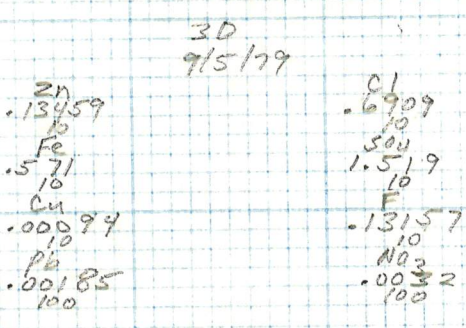 3D
9/5/79
Zn
.13459
10
Fe
.571
10
Cu
.00094
10
Pb
.00185
100
Cl
.6909
10
SO4
1.519
10
F
.13157
10
NO3
.0032
100